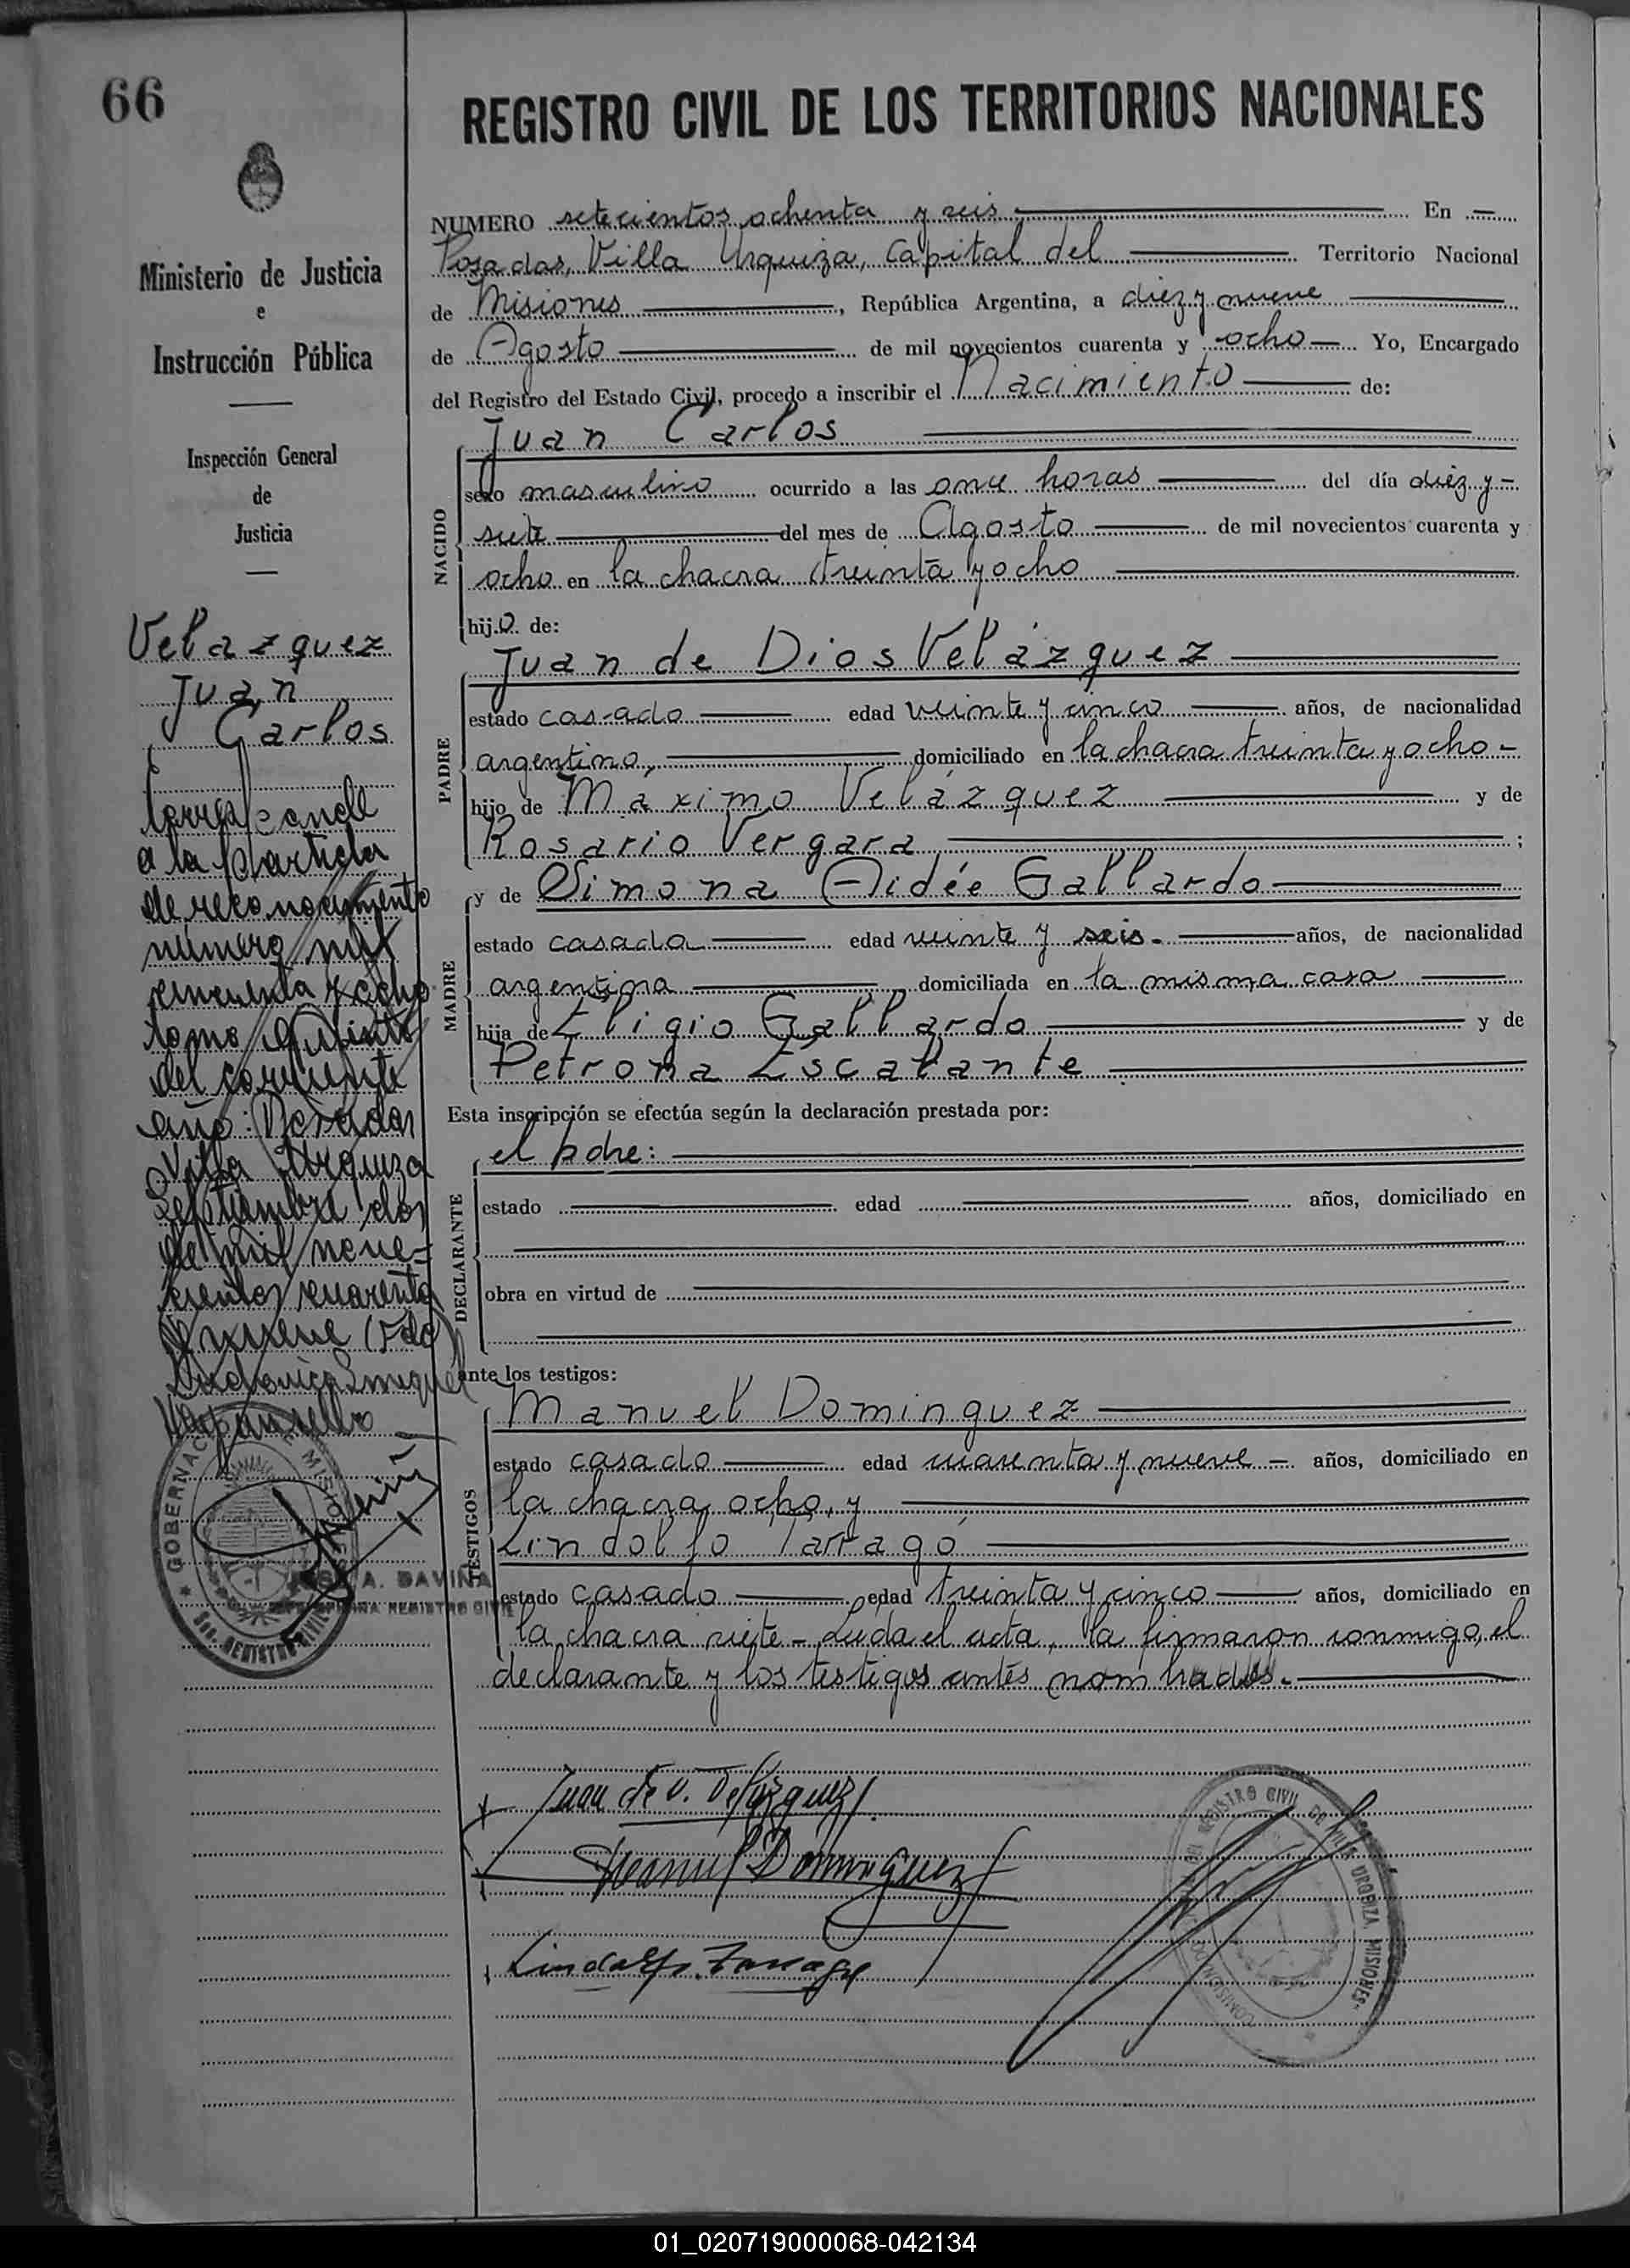 66
REGISTRO CIVIL DE LOS TERRITORIOS NACIONALES
Ministerio de Justicia
e
Instrucción Pública
Inspección General
de
Justicia
NUMERO setecientos ochenta y seis En
Posadas, Villa Urquiza, Capital del Territorio Nacional
de Misiones, República Argentina, a diez y nueve
de Agosto de mil novecientos cuarenta y ocho Yo, Encargado
del Registro del Estado Civil, procedo a inscribir el Nacimiento de:
NACIDO
Juan Carlos
sexo masculino ocurrido a las once horas del día diez y
siete del mes de Agosto de mil novecientos cuarenta y
ocho en la chacra treinta y ocho
hijo de:
PADRE
Juan de Dios Velázquez
estado casado edad veinte y cinco años, de nacionalidad
argentino, domiciliado en la chacra treinta y ocho
hijo de Maximo Velázquez y de
Rosario Vergara ;
MADRE
y de Simona Aidée Gallardo
estado casada edad veinte y seis. años, de nacionalidad
argentina domiciliada en la misma casa
hija de Eligio Gallardo y de
Petrona Escalante
Esta inscripción se efectúa según la declaración prestada por:
DECLARANTE
el padre:
estado edad años, domiciliado en
obra en virtud de
ante los testigos:
TESTIGOS
Manuel Dominguez
estado casado edad cuarenta y nueve años, domiciliado en
la chacra ocho, y
Lindolfo Tarragó
estado casado edad treinta y cinco años, domiciliado en
la chacra siete - Leida el acta, la firmaron conmigo, el
declarante y los testigos antes nombrados.
Velazquez
Juan
Carlos
Corresponde
a la partida
de reconocimiento
número mil
cincuenta y ocho
tomo quinto
del corriente
año: Posadas
Villa Urquiza
Septiembre dos
de mil nove-
cientos cuarenta
y nueve (Fdo)
GOBERNACION MISIONES
REGISTRO CIVIL
A. DAVIÑA
OFICINA REGISTRO CIVIL
Juan de D. Velázquez
Manuel Dominguez
Lindolfo Tarrago
REGISTRO CIVIL DE VILLA URQUIZA, MISIONES
01_020719000068-042134